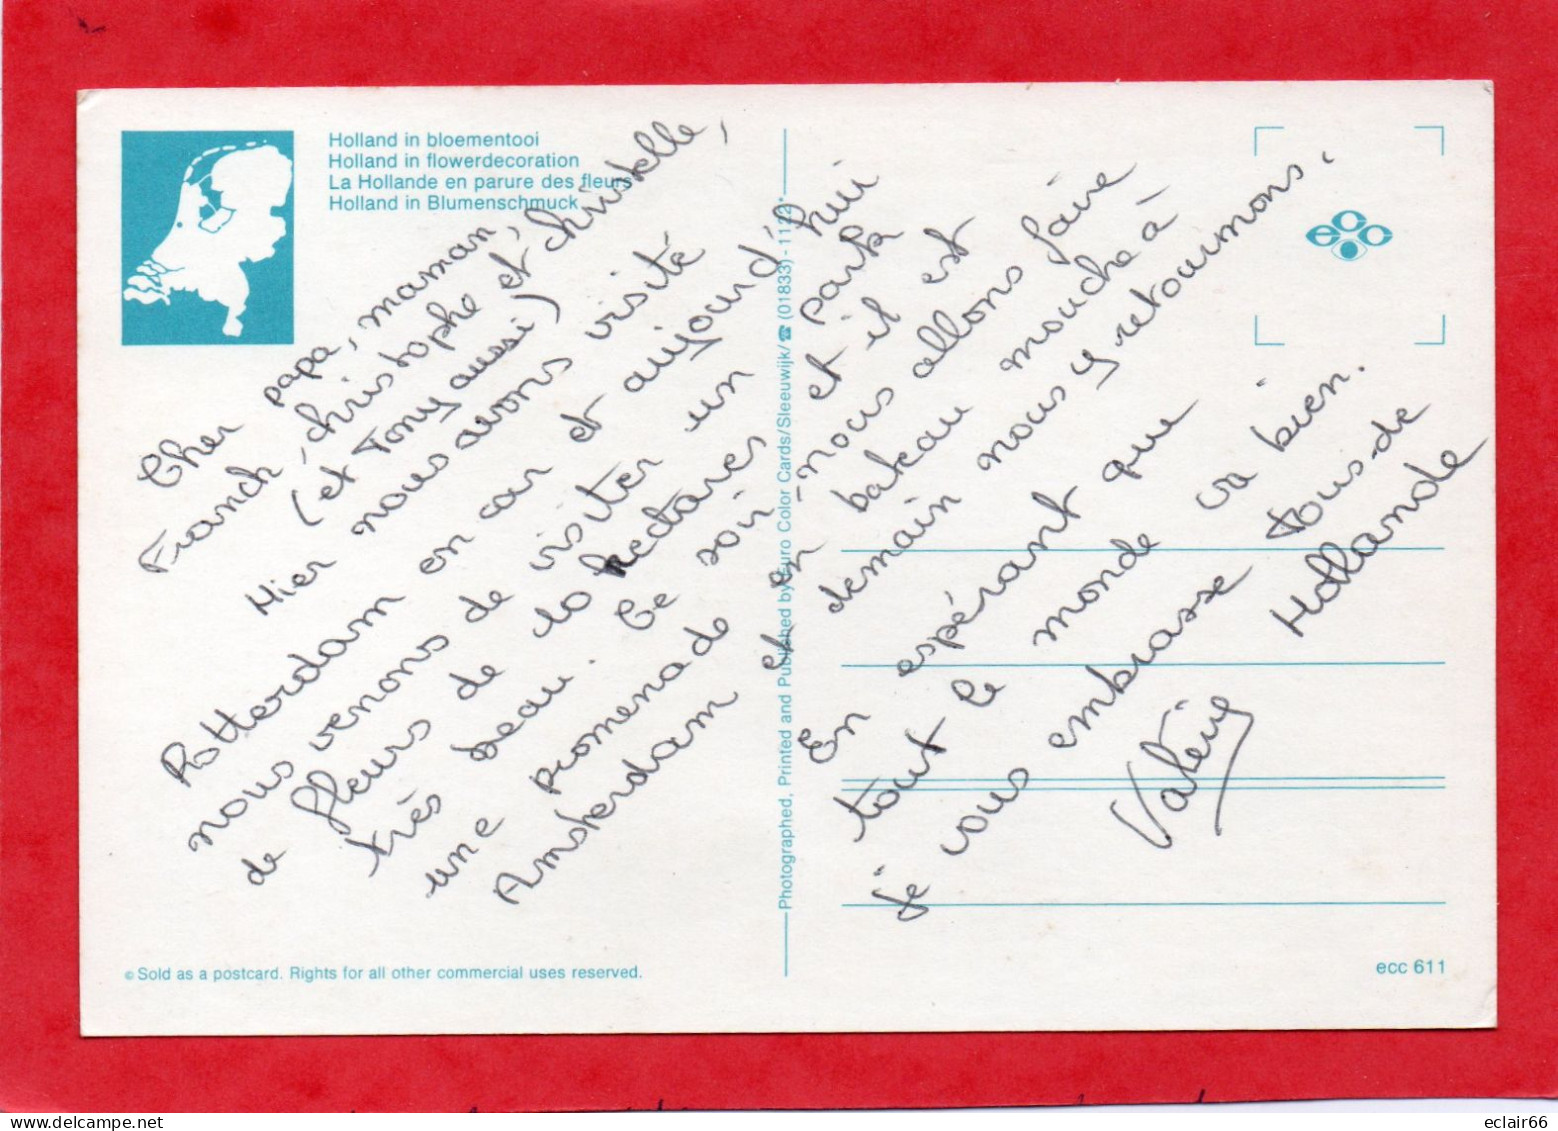 Holland in bloementooi
Holland in flowerdecoration
La Hollande en parure des fleurs
Holland in Blumenschmuck
Cher papa, maman,
Franck, christophe et christelle,
(et Tony aussi)
Hier nous avons visité
Rotterdam en car et aujourd'hui
nous venons de visiter un parc
de fleurs de 10 hectares et il est
très beau. Ce soir nous allons faire
une promenade en bateau mouche à
Amsterdam et demain nous y retournons.
En espérant que
tout le monde va bien.
Je vous embrasse tous de
Hollande
Valérie
Photographed, Printed and Published by Euro Color Cards/Sleeuwijk/☎ (01833) - 1122*
ecc
© Sold as a postcard. Rights for all other commercial uses reserved.
ecc 611
eclair66